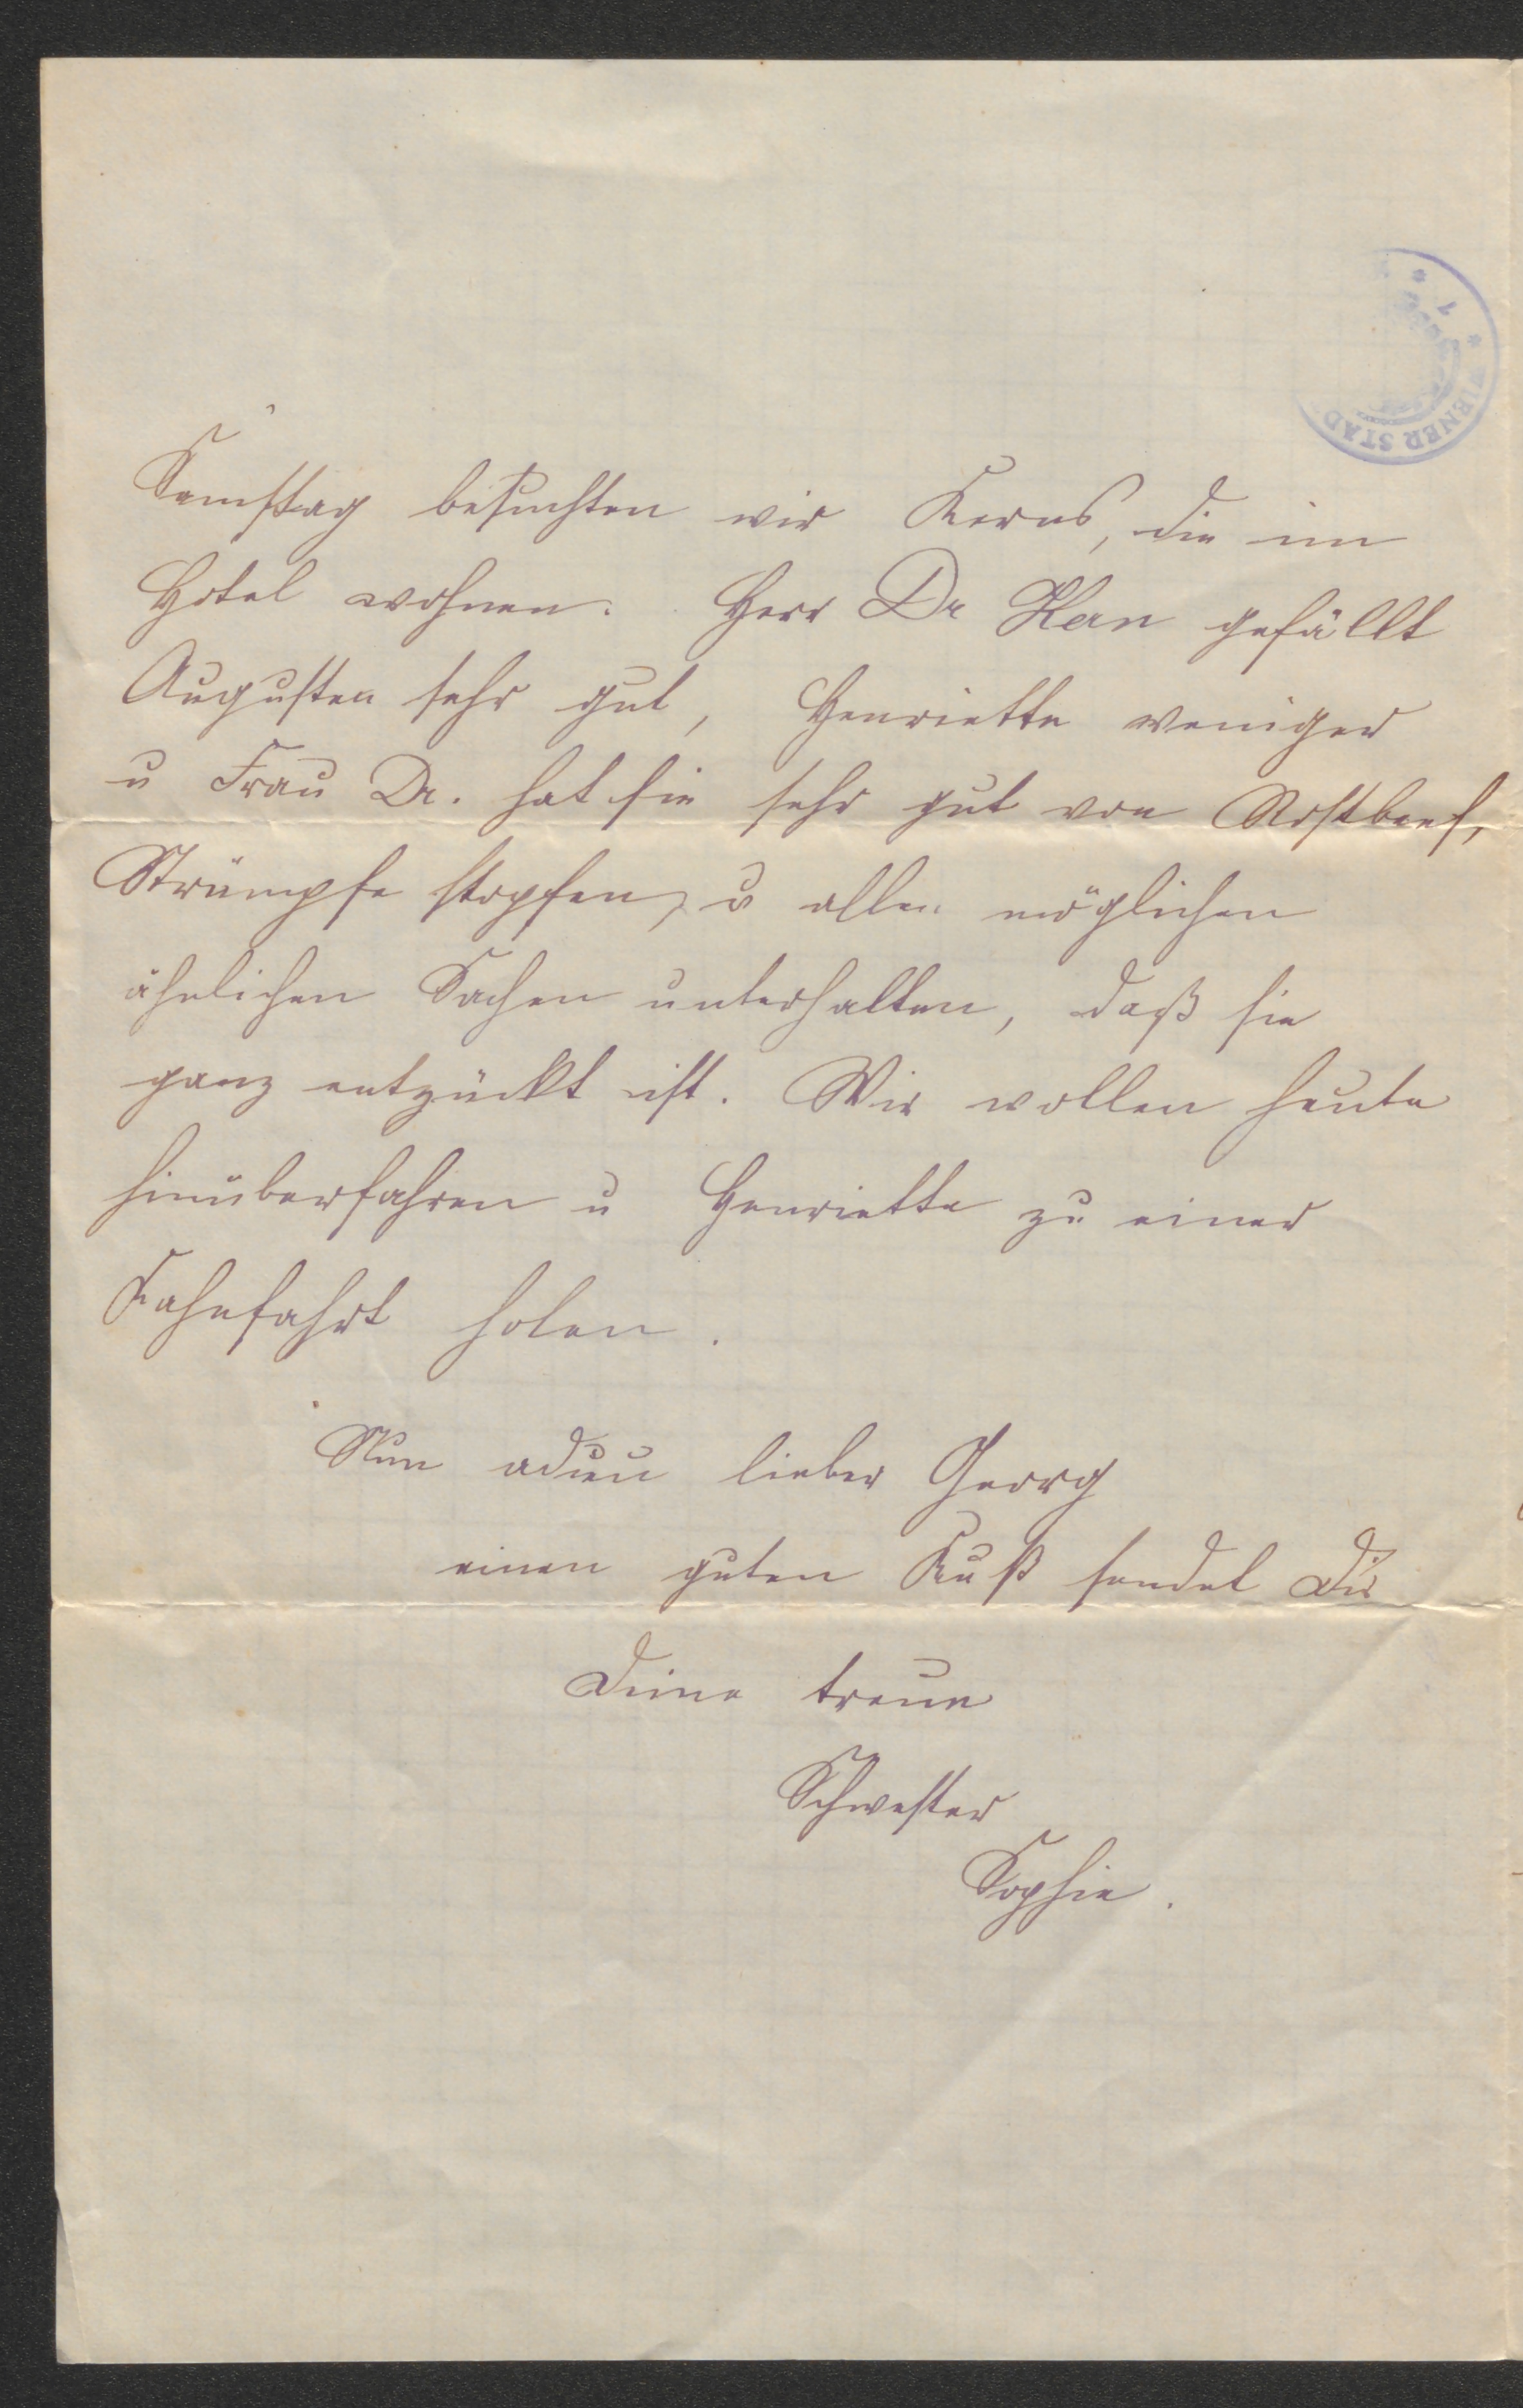 * 1 *
* WIENER STAD
Samstag besuchten wir Kerns, die im
Hotel wohnen. Herr Dr Kern gefällt
Augusten sehr gut, Henriette weniger
u Frau Dr. hat sie sehr gut von Rostbeef,
Strümpfe stopfen, u allen möglichen
ähnlichen Sachen unterhalten, daß sie
ganz entzückt ist. Wir wollen heute
hinüberfahren u Henriette zu einer
Kahnfahrt holen.
Nun adieu lieber Georg
einen guten Kuß sendet Dir
Deine treue
Schwester
Sophie.